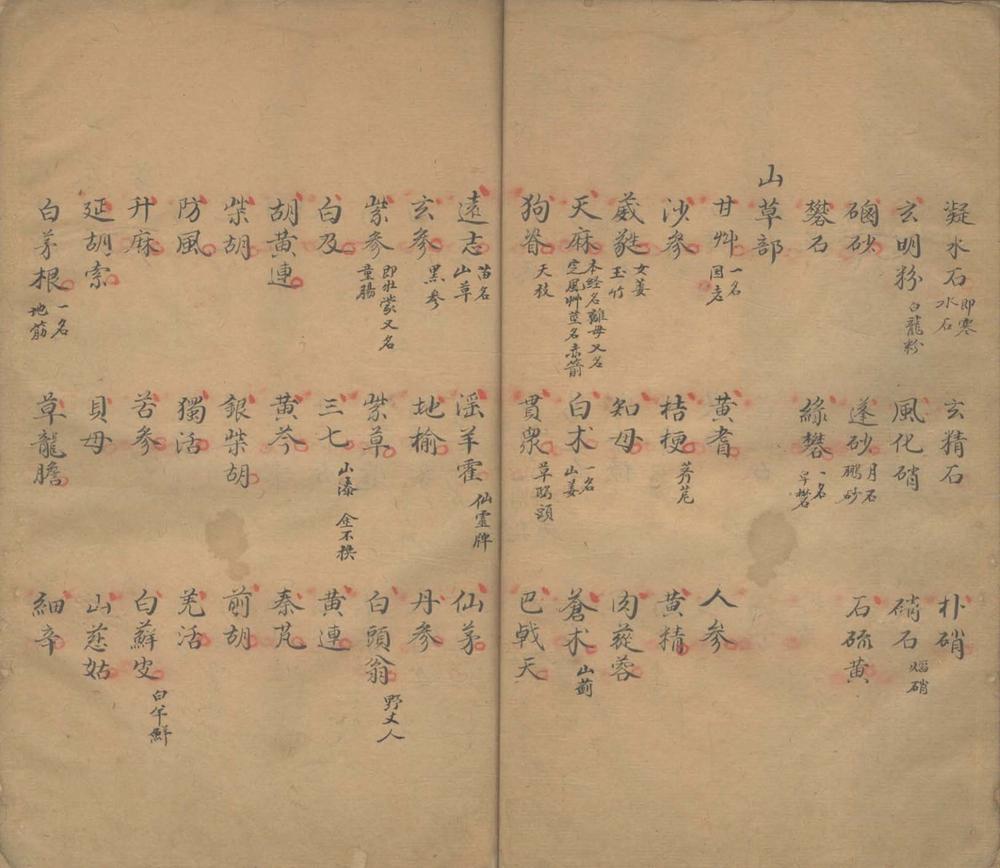 凝水石 即寒水石 玄精石 朴硝
玄明粉 白龍粉 風化硝 硝石 焰硝
硇砂 蓬砂 月石 鵬砂 石硫黄
礬石 綠礬 一名皂礬
山草部
甘艸 一名国老 黄耆 人參
沙參 桔梗 薺苨 黄精
葳蕤 女萎 玉竹 知母 肉蓯蓉
天麻 本經名離母又名定風艸莖名赤箭 白术 一名山姜 蒼术 山薊
狗脊 貫衆 草鴟頭 巴戟天
遠志 苗名山草 淫羊霍 仙靈脾 仙茅
玄參 黑參 地榆 丹參
紫參 即牡蒙又名童腸 紫草 白頭翁 野丈人
白及 三七 山漆 金不換 黄連
胡黄連 黄芩 秦艽
柴胡 銀柴胡 前胡
防風 獨活 羌活
升麻 苦參 白蘚皮 白羊鮮
延胡索 貝母 山慈姑
白茅根 一名地筋 草龍膽 細辛